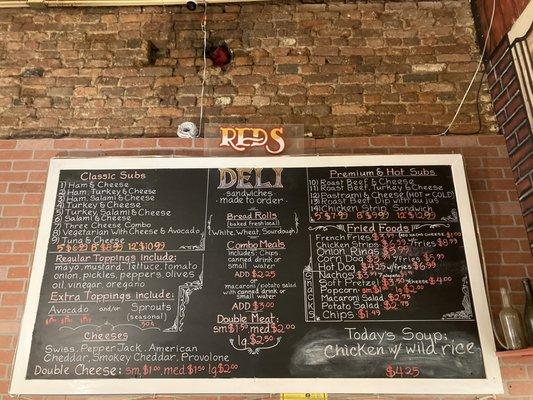 REDS
DELI
sandwiches
made to order
Classic Subs
1) Ham & Cheese
2) Ham, Turkey & Cheese
3) Ham, Salami & Cheese
4) Turkey & Cheese
5) Turkey, Salami & Cheese
6) Salami & Cheese
7) Three Cheese Combo
8) Vegetarian With Cheese & Avocado
9) Tuna & Cheese
5" 6.99 8" 8.99 12" 10.99
Regular Toppings include:
mayo, mustard, lettuce, tomato
onion, pickles, peppers, olives
oil, vinegar, oregano
Extra Toppings include:
Avocado and/or Sprouts
(seasonal) 50¢
Cheeses
Swiss, Pepper Jack, American
Cheddar, Smokey Cheddar, Provolone
Double Cheese: sm. $1.00 med. $1.50 lg. $2.00
Bread Rolls
baked fresh local
White, Wheat, Sourdough
Combo Meals
includes: Chips
canned drink or
small water
ADD $2.25
macaroni/potato salad
with canned drink
or small water
ADD $3.00
Double Meat:
sm $1.50 med $2.00
lg. $2.50
Premium & Hot Subs
10) Roast Beef & Cheese
11) Roast Beef, Turkey & Cheese
12) Pastrami & Cheese (HOT or COLD)
13) Roast Beef Dip with au jus
14) Chicken Strip Sandwich
5" 7.99 8" 9.99 12" 12.99
Fried Foods
French Fries
Chicken Strips w/fries $8.99
Onion Rings
Corn Dog w/fries $5.99
Hot Dog $4.25 w/fries $6.99
Nachos
Soft Pretzel $3.50 Cheese $4.00
Popcorn
Macaroni Salad $2.75
Potato Salad $2.75
Chips $1.49
snacks
Today's Soup:
chicken w/ wild rice
$4.25